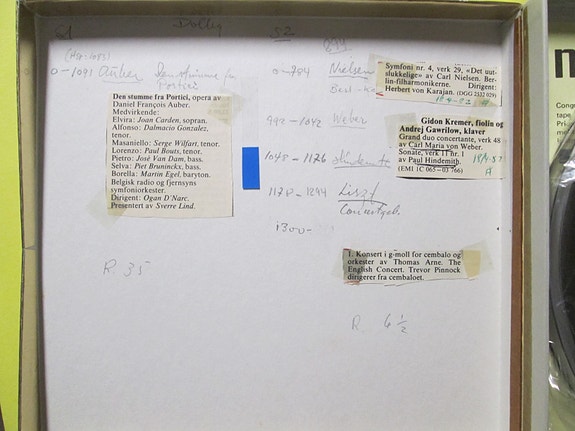 S1
Dolby
S2
0-1093 Auber Den stumme fra Portici
Den stumme fra Portici, opera av
Daniel François Auber.
Medvirkende:
Elvira: Joan Carden, sopran.
Alfonso: Dalmacio Gonzalez,
tenor.
Masaniello: Serge Wilfart, tenor.
Lorenzo: Paul Bouts, tenor.
Pietro: José Van Dam, bass.
Selva: Piet Bruninckx, bass.
Borella: Martin Egel, baryton.
Belgisk radio og fjernsyns
symfoniorkester.
Dirigent: Ogan D'Narc.
Presentert av Sverre Lind.
R 35
0-704 Nielsen
Symfoni nr. 4, verk 29, «Det uut-
slukkelige» av Carl Nielsen. Ber-
lin-filharmonikerne. Dirigent:
Herbert von Karajan. (DGG 2532 029)
992-1042 Weber
Gidon Kremer, fiolin og
Andrej Gawrilow, klaver
Grand duo concertante, verk 48
av Carl Maria von Weber.
Sonate, verk 11 nr. 1
av Paul Hindemith.
(EMI 1C 065-03 766)
1048-1176 Hindemith
1178-1294 Liszt
1300-
T. Konsert i g-moll for cembalo og
orkester av Thomas Arne. The
English Concert. Trevor Pinnock
dirigerer fra cembaloet.
R 6 1/2